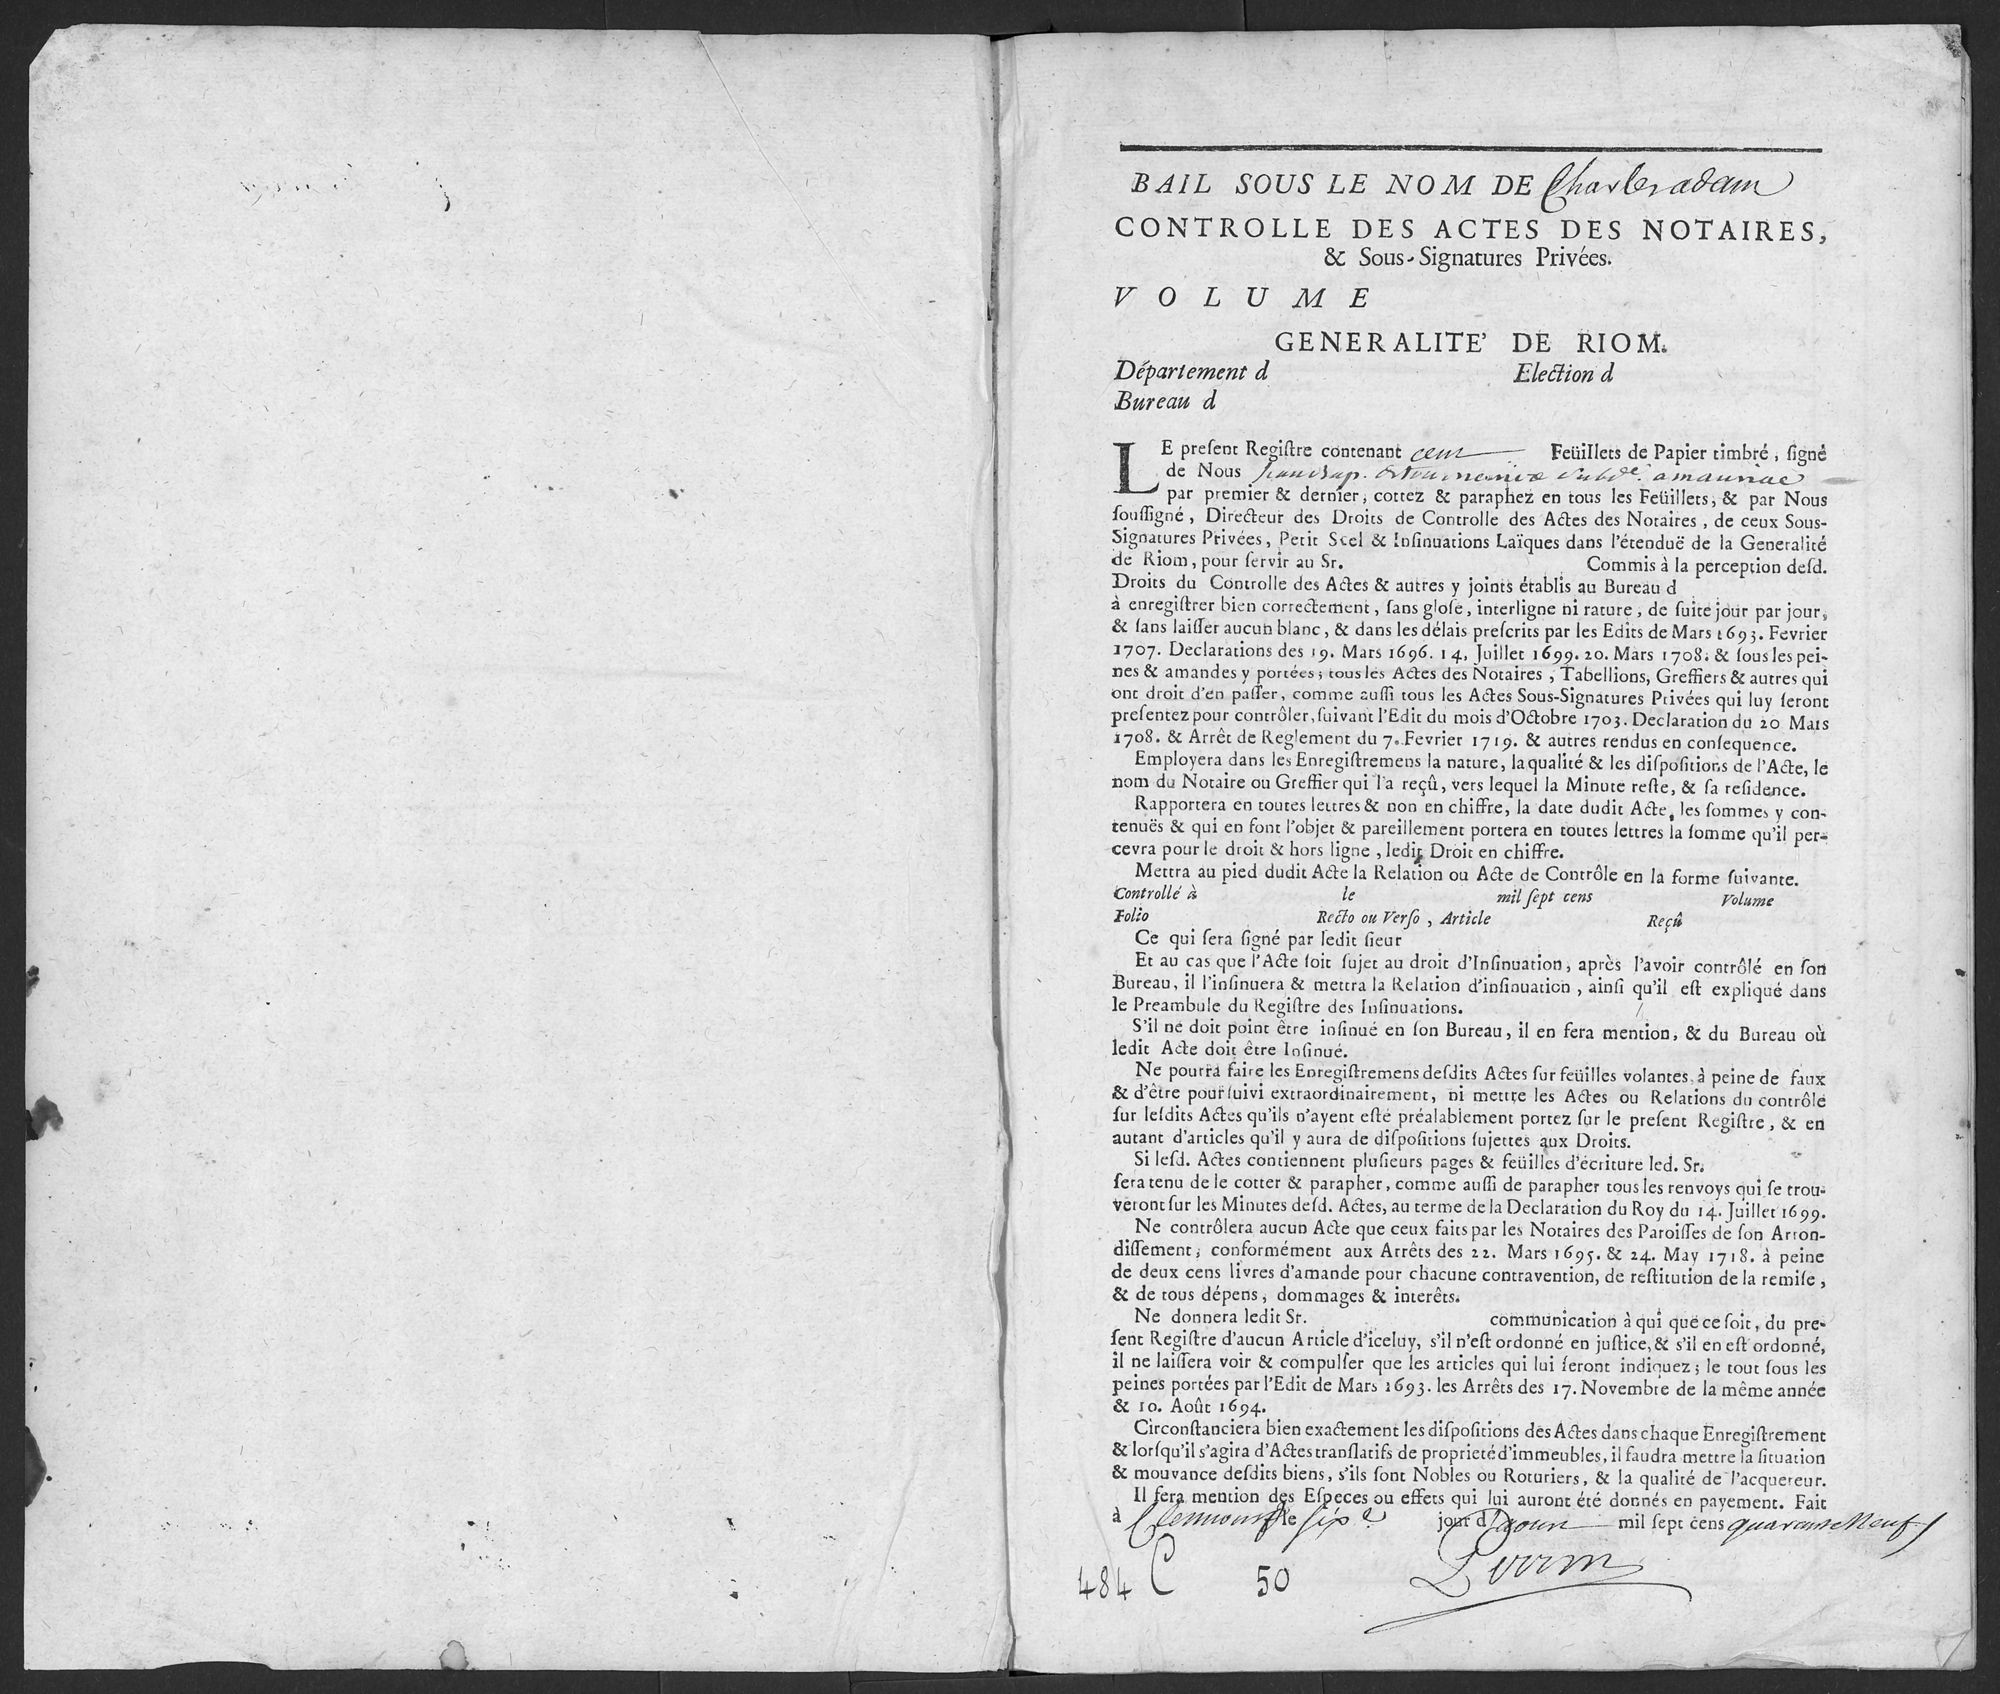 BAIL SOUS LE NOM DE Charles adam
CONTROLLE DES ACTES DES NOTAIRES,
& Sous-Signatures Privées.
VOLUME
GENERALITE' DE RIOM.
Département d Election d
Bureau d
LE preſent Regiſtre contenant cent Feüillets de Papier timbré, ſigné
de Nous amauriac
par premier & dernier, cottez & paraphez en tous les Feüillets, & par Nous
ſouſſigné, Directeur des Droits de Controlle des Actes des Notaires, de ceux Sous-
Signatures Privées, Petit Scel & Inſinuations Laïques dans l'étenduë de la Generalité
de Riom, pour ſervir au Sr. Commis à la perception deſd.
Droits du Controlle des Actes & autres y joints établis au Bureau d
à enregiſtrer bien correctement, ſans gloſe, interligne ni rature, de ſuite jour par jour,
& ſans laiſſer aucun blanc, & dans les délais preſcrits par les Edits de Mars 1693. Fevrier
1707. Declarations des 19. Mars 1696. 14. Juillet 1699. 20. Mars 1708. & ſous les pei-
nes & amandes y portées; tous les Actes des Notaires, Tabellions, Greffiers & autres qui
ont droit d'en paſſer, comme auſſi tous les Actes Sous-Signatures Privées qui luy ſeront
preſentez pour contrôler, ſuivant l'Edit du mois d'Octobre 1703. Declaration du 20 Mars
1708. & Arrêt de Reglement du 7. Fevrier 1719. & autres rendus en conſequence.
Employera dans les Enregiſtremens la nature, la qualité & les diſpoſitions de l'Acte, le
nom du Notaire ou Greffier qui l'a reçû, vers lequel la Minute reſte, & ſa reſidence.
Rapportera en toutes lettres & non en chiffre, la date dudit Acte, les ſommes y con-
tenuës & qui en font l'objet & pareillement portera en toutes lettres la ſomme qu'il per-
cevra pour le droit & hors ligne, ledit Droit en chiffre.
Mettra au pied dudit Acte la Relation ou Acte de Contrôle en la forme ſuivante.
Controllé à le mil ſept cens Volume
Folio Recto ou Verſo, Article Reçû
Ce qui ſera ſigné par ledit ſieur
Et au cas que l'Acte ſoit ſujet au droit d'Inſinuation, après l'avoir contrôlé en ſon
Bureau, il l'inſinuera & mettra la Relation d'inſinuation, ainſi qu'il eſt expliqué dans
le Preambule du Regiſtre des Inſinuations.
S'il ne doit point être inſinué en ſon Bureau, il en fera mention, & du Bureau où
ledit Acte doit être Inſinué.
Ne pourra faire les Enregiſtremens deſdits Actes ſur feüilles volantes, à peine de faux
& d'être pourſuivi extraordinairement, ni mettre les Actes ou Relations du contrôle
ſur leſdits Actes qu'ils n'ayent eſté préalablement portez ſur le preſent Regiſtre, & en
autant d'articles qu'il y aura de diſpoſitions ſujettes aux Droits.
Si leſd. Actes contiennent pluſieurs pages & feüilles d'écriture led. Sr.
ſera tenu de le cotter & parapher, comme auſſi de parapher tous les renvoys qui ſe trou-
veront ſur les Minutes deſd. Actes, au terme de la Declaration du Roy du 14. Juillet 1699.
Ne contrôlera aucun Acte que ceux faits par les Notaires des Paroiſſes de ſon Arron-
diſſement, conformément aux Arrêts des 22. Mars 1695. & 24. May 1718. à peine
de deux cens livres d'amande pour chacune contravention, de reſtitution de la remiſe,
& de tous dépens, dommages & interêts.
Ne donnera ledit Sr. communication à qui que ce ſoit, du pre-
ſent Regiſtre d'aucun Article d'iceluy, s'il n'eſt ordonné en juſtice, & s'il en eſt ordonné,
il ne laiſſera voir & compulſer que les articles qui lui ſeront indiquez; le tout ſous les
peines portées par l'Edit de Mars 1693. les Arrêts des 17. Novembre de la même année
& 10. Août 1694.
Circonſtanciera bien exactement les diſpoſitions des Actes dans chaque Enregiſtrement
& lorſqu'il s'agira d'Actes tranſlatifs de proprieté d'immeubles, il faudra mettre la ſituation
& mouvance deſdits biens, s'ils ſont Nobles ou Roturiers, & la qualité de l'acquereur.
Il fera mention des Eſpeces ou effets qui lui auront été donnés en payement. Fait
à Clermont le sixe jour d'aoust mil ſept cens quarante Neuf
Perrin
484 C 50